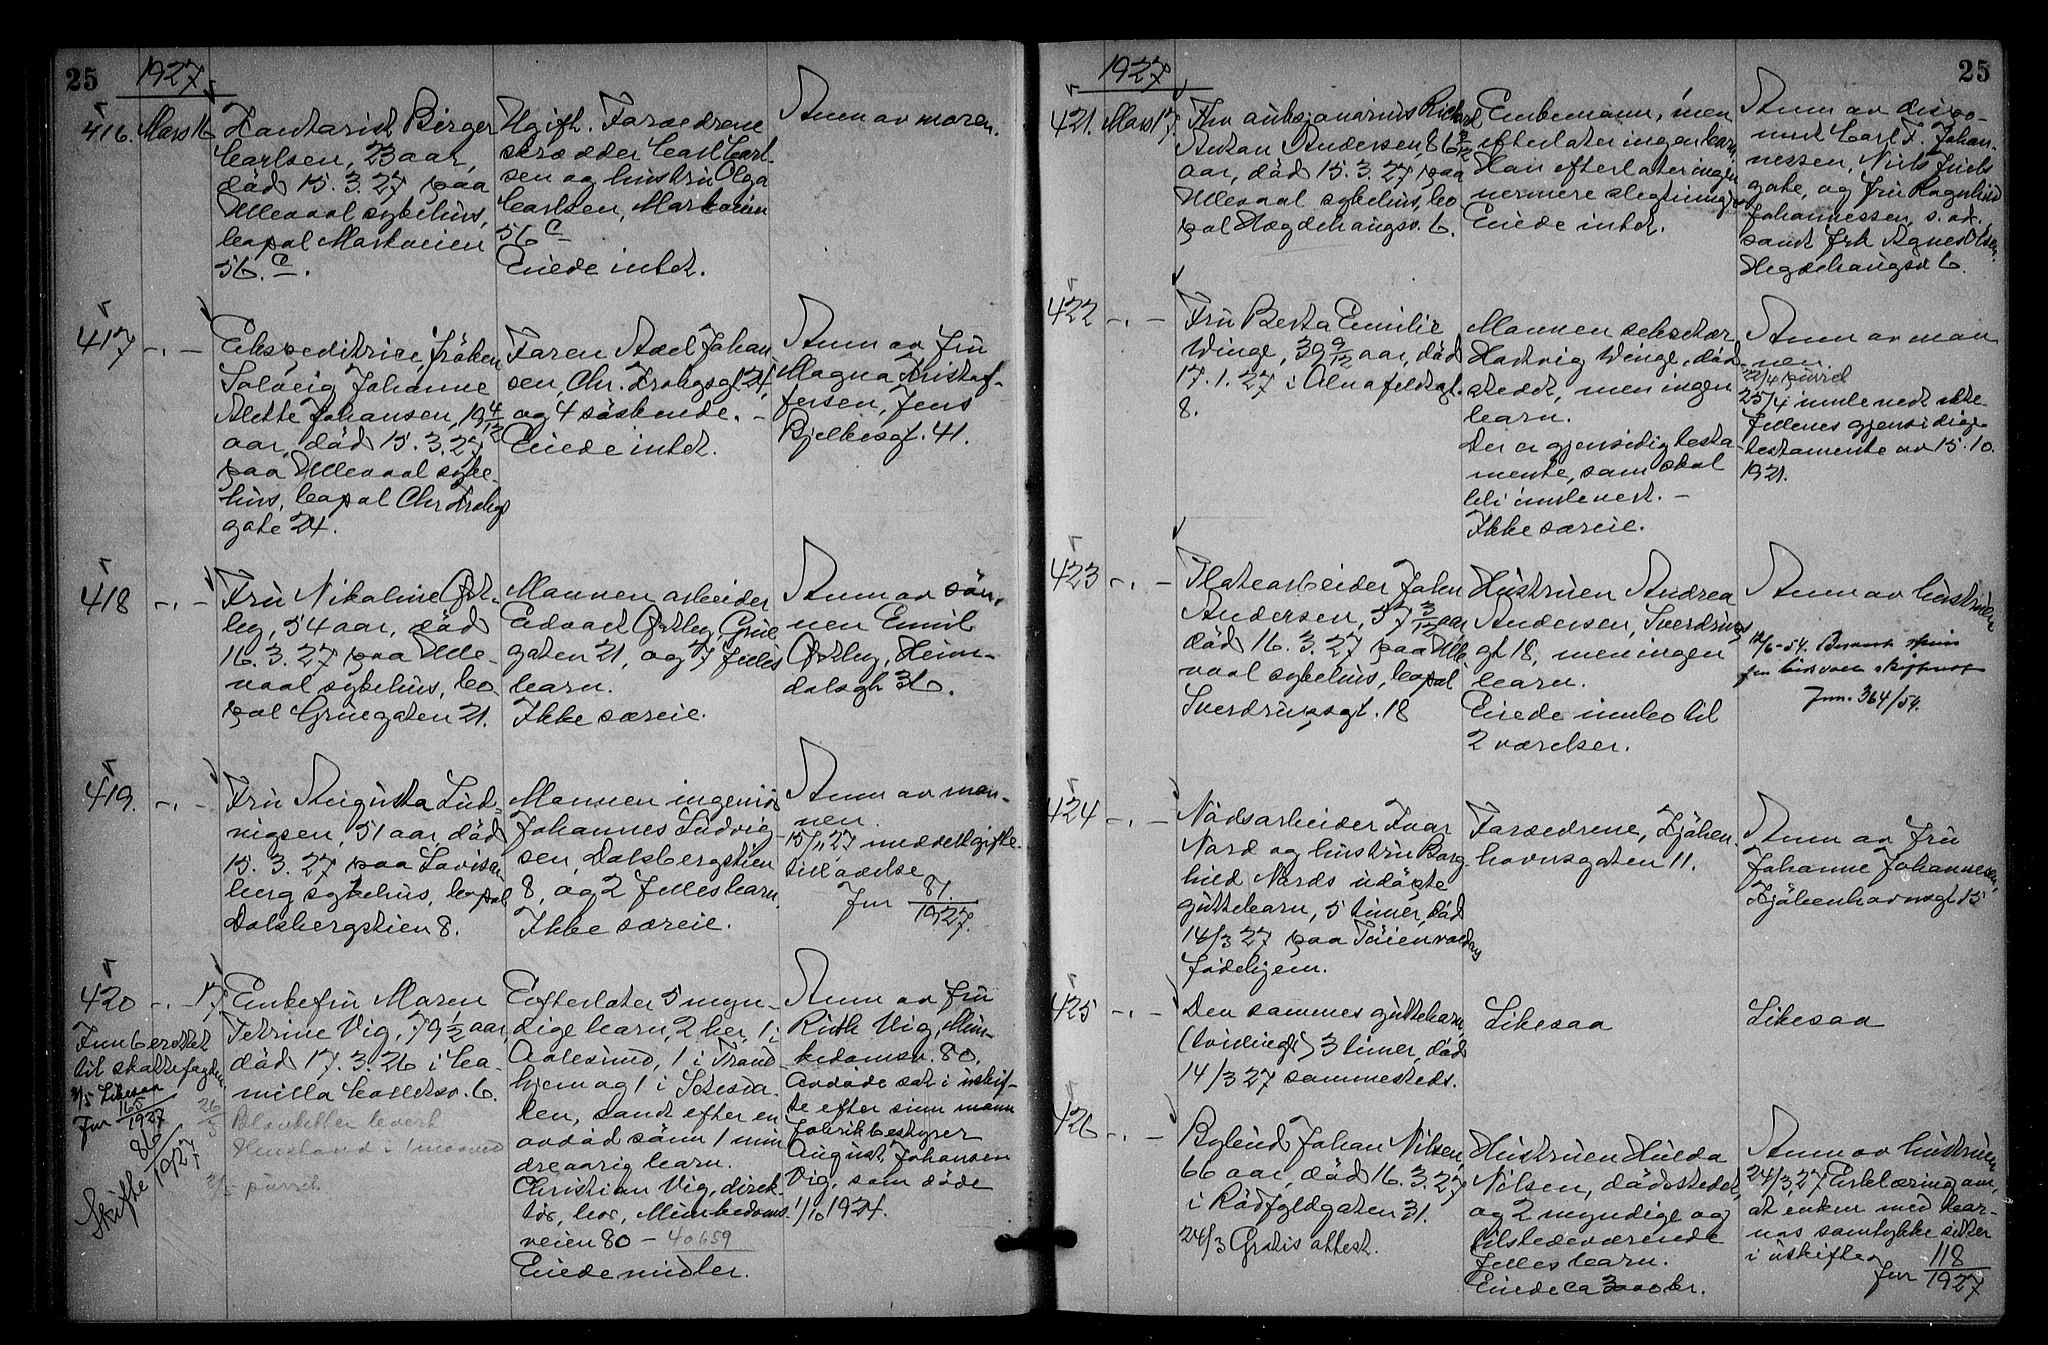 25
1927
416. Mars 16
Kontorist Birger
Carlsen, 23 aar,
död 15.3.27 paa
Ullevaal sykehus,
bopal Markveien
56. c.
Ugift. Foræedrene
skrædder Carl Carl-
sen og hustru Olga
Carlsen, Markveien
56 c
Eiede intet.
Anm av moren.
417 -.-
Ekspeditrice, fröken
Solveig Johanne
Alette Johansen, 19 4/12
aar, död 15.3.27
paa Ullevaal syke-
hus, bopal Chr Krohgs
gate 24.
Faren Axel Johan
sen, Chr. Krohgsgt 24,
og 4 söskende. -
Eiede intet.
Anm av fru
Magna Kristof-
fersen, Jens
Bjelkesgt. 41.
418 -.-
Fru Nikoline Öst-
by, 54 aar, död
16.3.27 paa Ulle-
vaal sykehus, bo-
pal Grüegaten 21.
Mannen arbeider
Edvart Østby, Grüe
gaten 21, og 7 fælles
barn.
Ikke særeie.
Anm av sön-
nen Emil
Østby, Heim-
dalsgt 36.
419. -.-
Fru Augusta Lud-
vigsen, 51 aar, död
15.3.27 paa Lovisen
berg sykehus, bopal
Dalsbergstien 8.
Mannen ingeniör
Johannes Ludvig-
sen, Dalsbergstien
8, og 2 fælles barn.
Ikke særeie.
Anm av man-
nen.
15/11 27 meddelt gifte-
tilladelse
Jnr 81/1927.
420 -.- 17
Innberettet
til skattefogden
3/5 Likesaa
Jnr 165/1927
Skifte 86/1927
Enkefru Maren
Petrine Vig, 79 1/2 aar,
död 17.3.26 i Ca-
milla Colletsv. 6.
26/3
Blanketter levert
Henstand i 1 maaned
2/5 purret
Efterlater 5 myn-
dige barn, 2 her, 1 i
Aalesund, 1 i Trond
hjem og 1 i Setesda-
len, samt efter en
avdöd sönn 1 min
dreaarig barn.
Christian Vig, direk-
tör, bor, Munkedams-
veien 80 - 40659
Eiede midler.
Anm av fru
Ruth Vig, Mun-
kedamsv. 80.
Avdöde sat i uskif-
te efter sinn mann
fabrikbestyrer
August Johansen
Vig, som döde
1/10 1924.
25
1927
421. Mars 17.
Fhv auksjonarius Richard
Anton Andersen, 86 2/12
aar, död 15.3.27 paa
Ullevaal sykehus, bo
pal Hægdehaugsv. 6.
Enkemann, men
efterlater ingen barn.
Han efterlater ingen
nermere slegtninger.
Eiede intet.
Anm av dispo-
nent Carl F. Johan-
nessen, Niels Juels
gate, og fru Ragnhild
Johannessen, s. st.
samt frk Agnes Olsen,
Hegdehaugsv 6.
422 -.-
Fru Berta Emilie
Winge, 39 9/12 aar, död
17.1.27 i Alnafeldtgt.
8.
Mannen sekretær
Hartvig Winge, död-
stedet, men ingen
barn.
Der er gjensidig testa
mente, som skal
bli innlevert. -
Ikke særeie.
Anm av man
nen
22/4 purret
25/4 innlevert ekte-
fellenes gjensidige
testamente av 15.10.
1921.
423 -.-
Platearbeider John
Andersen, 57 3/12 aar,
död 16.3.27 paa Ulle-
vaal sykehus, bopal
Sverdrupsgt. 18
Hustruen Andrea
Andersen, Sverdrups
gt 18, men ingen
barn.
Eiede innbo til
2 værelser.
Anm av hustruen
12/6-54. Besvart
Jnn. 364/54.
424 -.-
Nödsarbeider Ivar
Nord og hustru Borg
hild Nords udöpte
guttebarn, 5 timer, död
14/3 27 paa Töienvoldens
fødehjem.
Foræedrene, Kjöben-
havnsgaten 11.
Anm av fru
Johanne Johannesen,
Kjöbenhavnsgt 15
425 -.-
Den sammes guttebarn,
(tvilling) 3 timer, död
14/3 27 sammesteds.
Likesaa
Likesaa
426 -.-
Bybud Johan Nilsen,
66 aar, död 16.3.27
i Rödfyldgaten 31.
24/3 Gratis attest.
Hustruen Hulda
Nilsen, dödsstedet,
og 2 myndige og
tilstedeværende
felles barn.
Eiede ca 3000 kr.
Anm av hustruen
24/3,27 Erklæring om,
at enken med bar-
nas samtykke sitter
i uskifte.
Jnr 118/1927